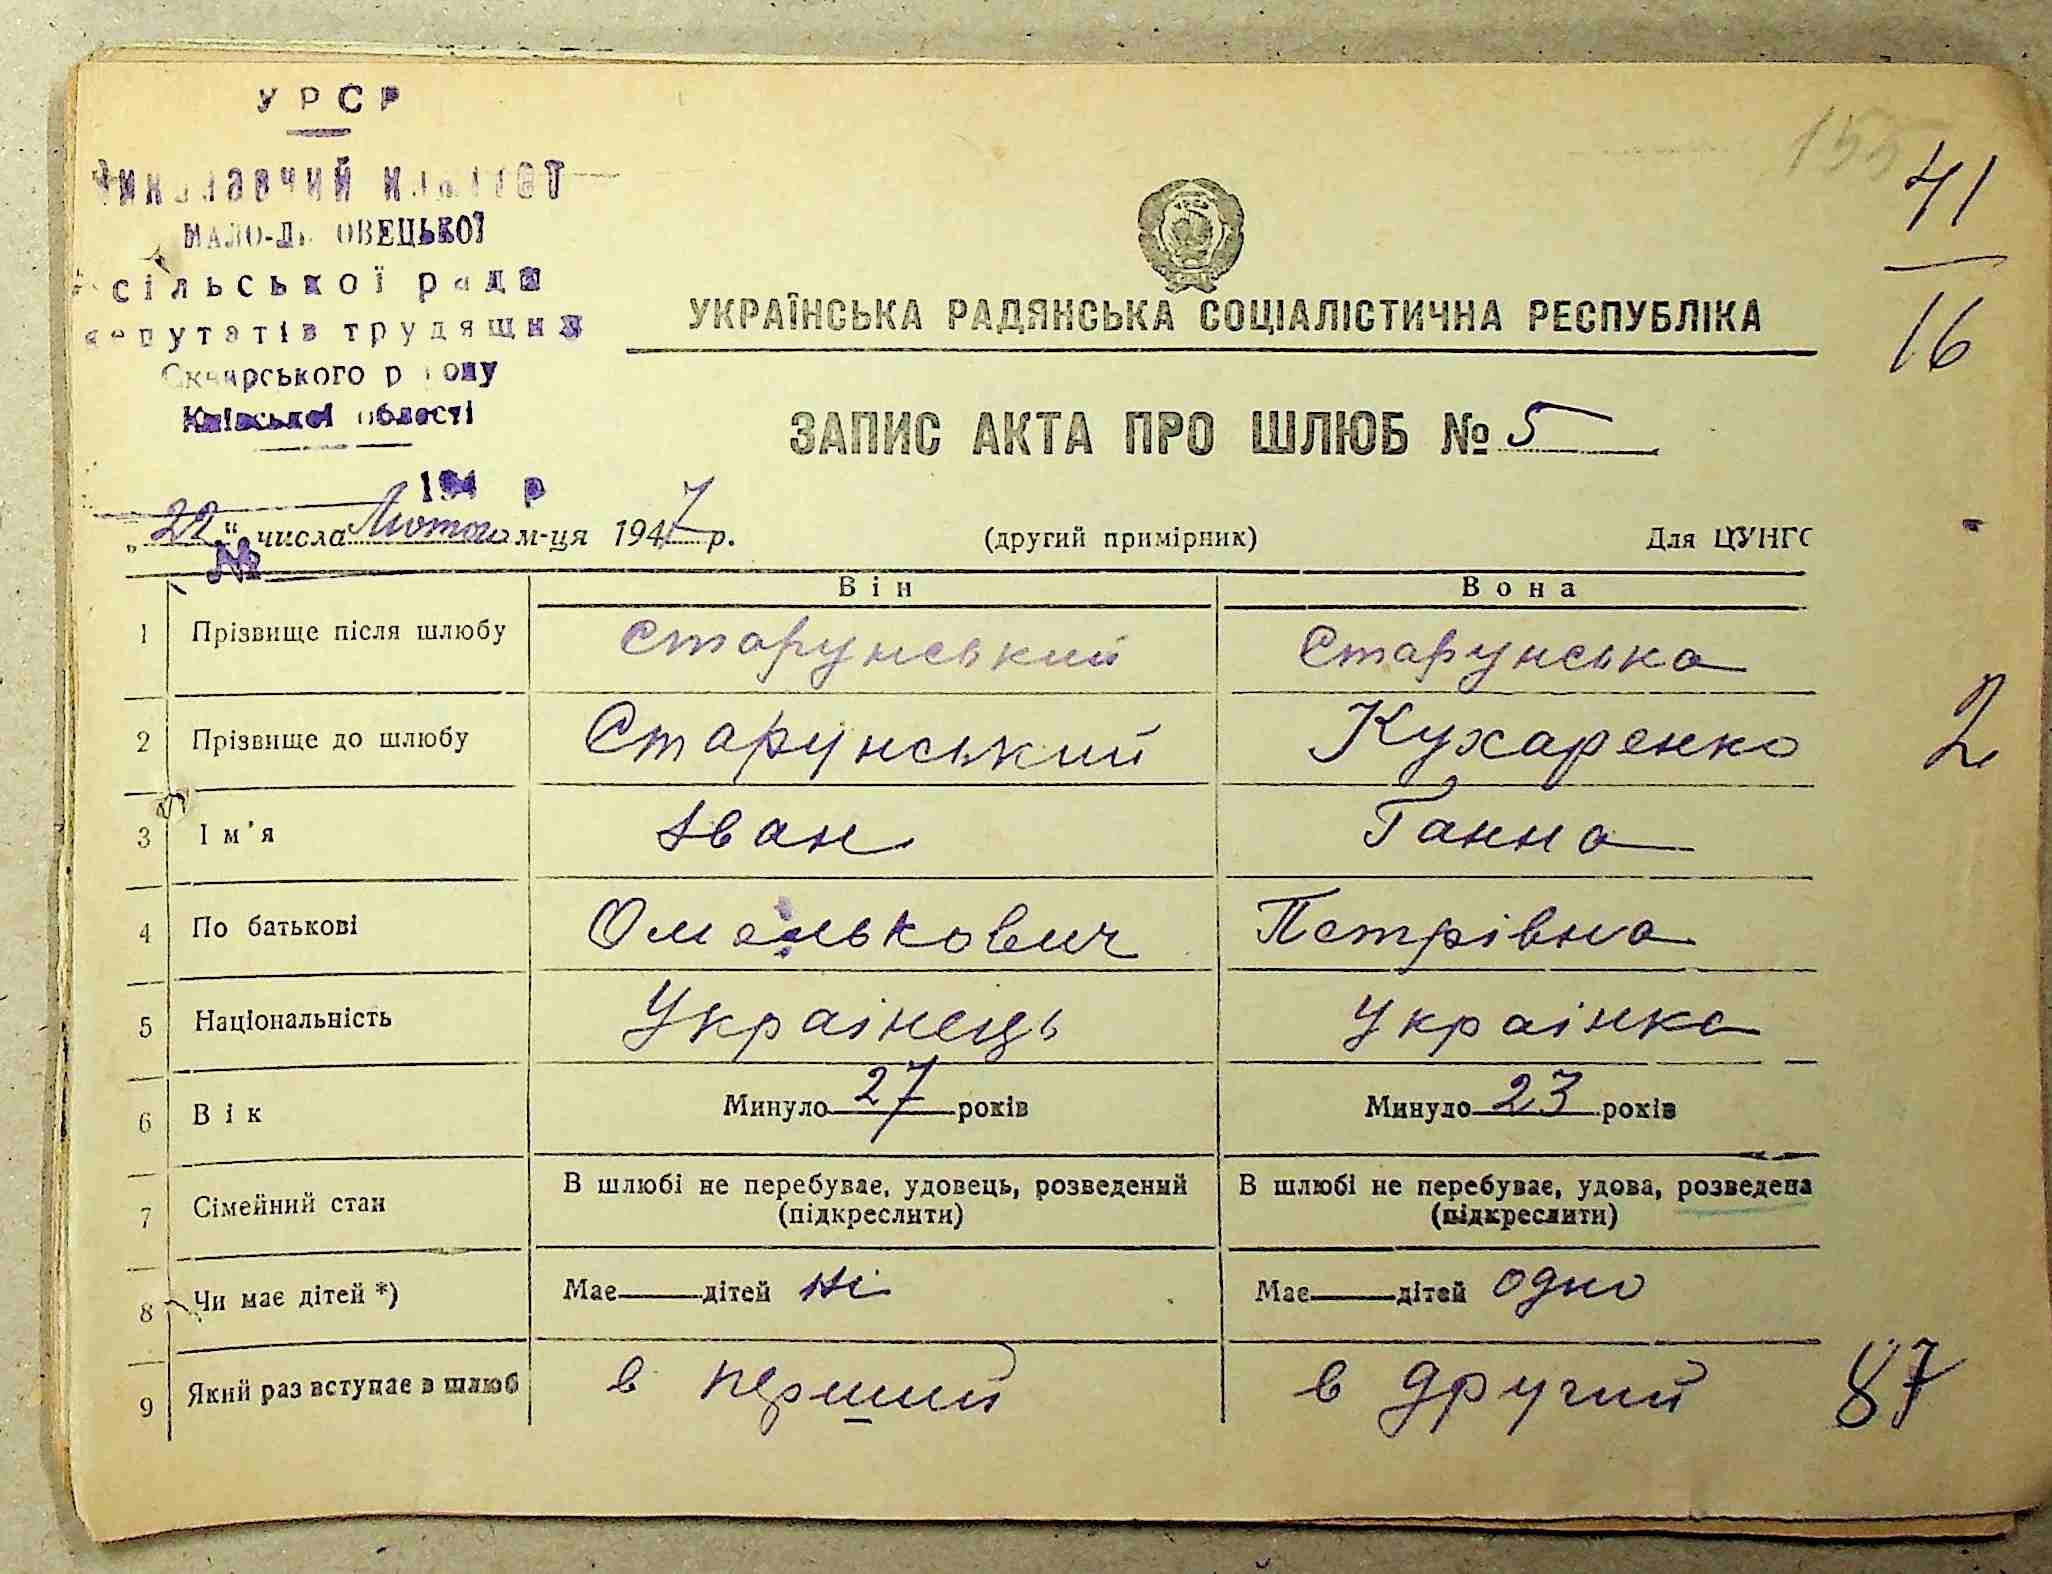 УРСР
МАЛО- ОВЕЦЬКОЇ
сільської ради
депутатів трудящих
Сквирського району
Київської області
194 р
155
41
16
УКРАЇНСЬКА РАДЯНСЬКА СОЦІАЛІСТИЧНА РЕСПУБЛІКА
ЗАПИС АКТА ПРО ШЛЮБ № 5
„22“ числа Лютого м-ця 1947 р. (другий примірник) Для ЦУНГО
№
Він Вона
1 Прізвище після шлюбу Старунський Старунська
2 Прізвище до шлюбу Старунський Кухаренко 2
3 Ім'я Іван Ганна
4 По батькові Омелькович Петрівна
5 Національність Українець Українка
6 Вік Минуло 27 років Минуло 23 років
7 Сімейний стан В шлюбі не перебуває, удовець, розведений В шлюбі не перебуває, удова, розведена
(підкреслити) (підкреслити)
8 Чи має дітей *) Має дітей ні Має дітей одно
9 Який раз вступає в шлюб в перший в другий 87